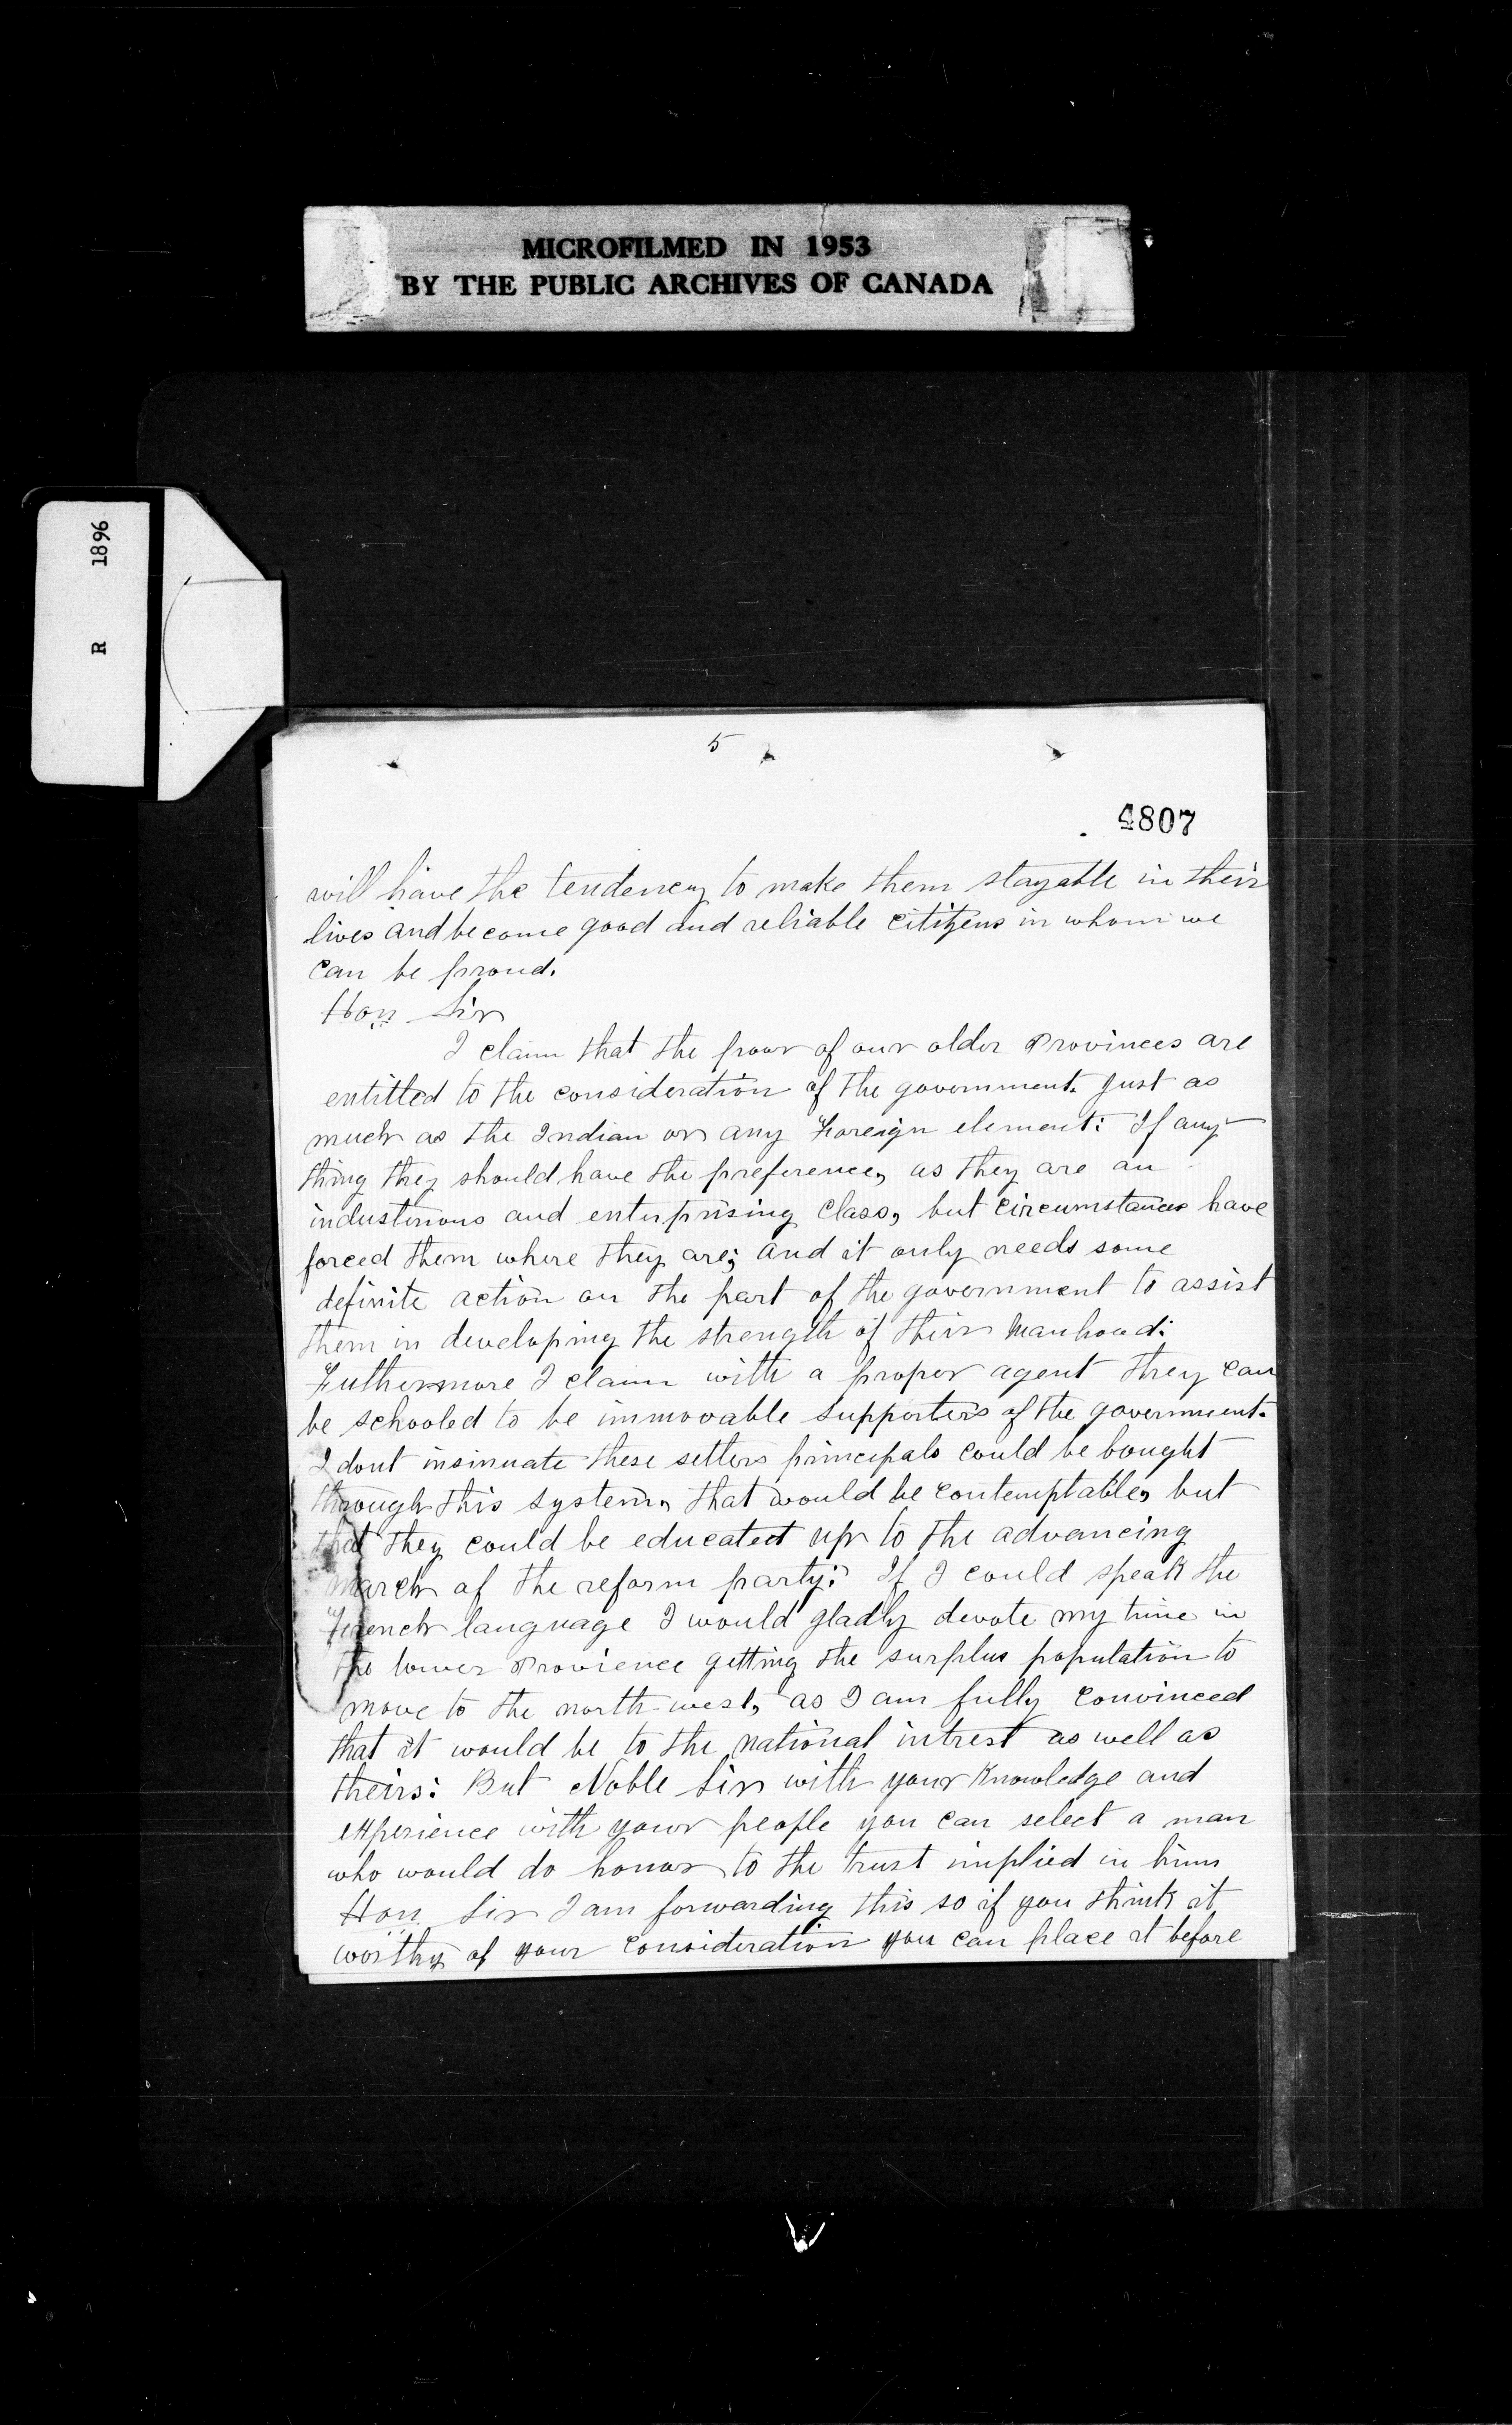 MICROFILMED IN 1953
BY THE PUBLIC ARCHIVES OF CANADA
R 1896
5
4807
will have the tendency to make them stayable in their
lives and become good and reliable citizens in whom we
can be proud.
Hon Sir
I claim that the poor of our older Provinces are
entitled to the consideration of the government. Just as
much as the Indian or any Foreign element: If any
thing they should have the preference, as they are an
industrious and enterprising class, but circumstances have
forced them where they are; and it only needs some
definite action on the part of the government to assist
them in developing the strength of their Manhood:
Futhermore I claim with a proper agent they can
be schooled to be immovable supporters of the government.
I dont insinuate these setlers principals could be bought
through this system, that would be contemptable, but
that they could be educated up to the advancing
march of the reform party: If I could speak the
French language I would gladly devote my time in
the lower Provience getting the surplus population to
move to the north west, as I am fully convinced
that it would be to the national intrest as well as
theirs: But Noble Sir with your Knowledge and
experience with your people you can select a man
who would do honor to the trust implied in him
Hon Sir I am forwarding this so if you think it
worthy of your consideration you can place it before